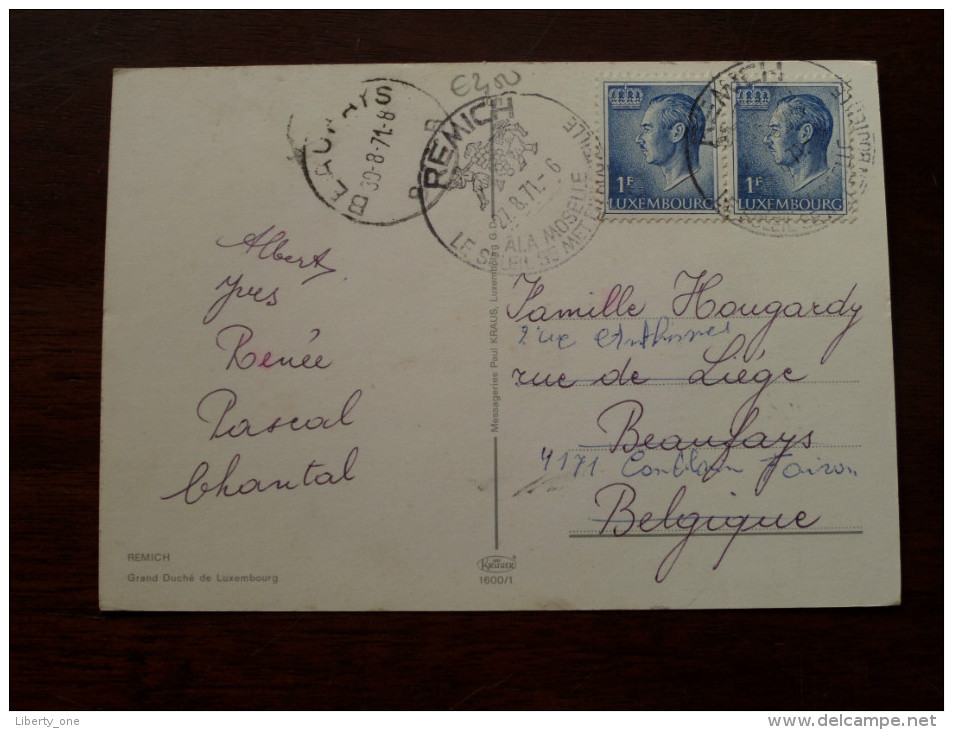 BEAUFAYS
30-8-71.-8
B B
€4,00
REMICH
27.8.71.-6
LE SOLEIL SE MET EN
A LA MOSELLE
REMICH
1F
LUXEMBOURG
1F
LUXEMBOURG
Albert
Yves
Renée
Pascal
Chantal
Messageries Paul KRAUS, Luxembourg G.D.
Famille Hougardy
2 rue
rue de Liége
Beaufays
4171
Belgique
REMICH
Grand Duché de Luxembourg
KRÜGER
1600/1
Liberty_one
www.delcampe.net